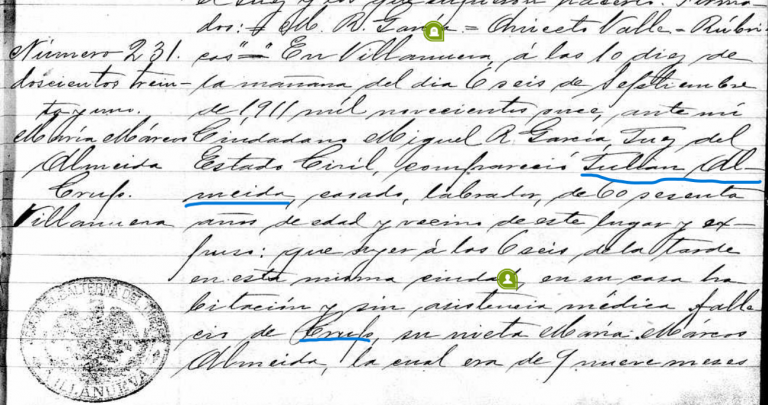 dos: = M. R. García = Aniceto Valle = Rúbri-
Número 231.
cas "=" En Villanueva, á las 10 diez de
doscientos trein-
la mañana del día 6 seis de Septiembre
ta y uno.
de 1911 mil novecientos once, ante mí
María Marcos
Ciudadano Miguel R. García, Juez del
Almeida
Estado Civil, compareció Julian Al-
Crup.
meida, casado, labrador, de 60 sesenta
Villanueva
años de edad y vecino de este lugar y ex-
puso: que ayer á las 6 seis de la tarde
en esta misma ciudad, en su casa ha
bitación y sin asistencia médica falle
ció de Crup, su nieta María Marcos
Almeida, la cual era de 9 nueve meses
VILLANUEVA